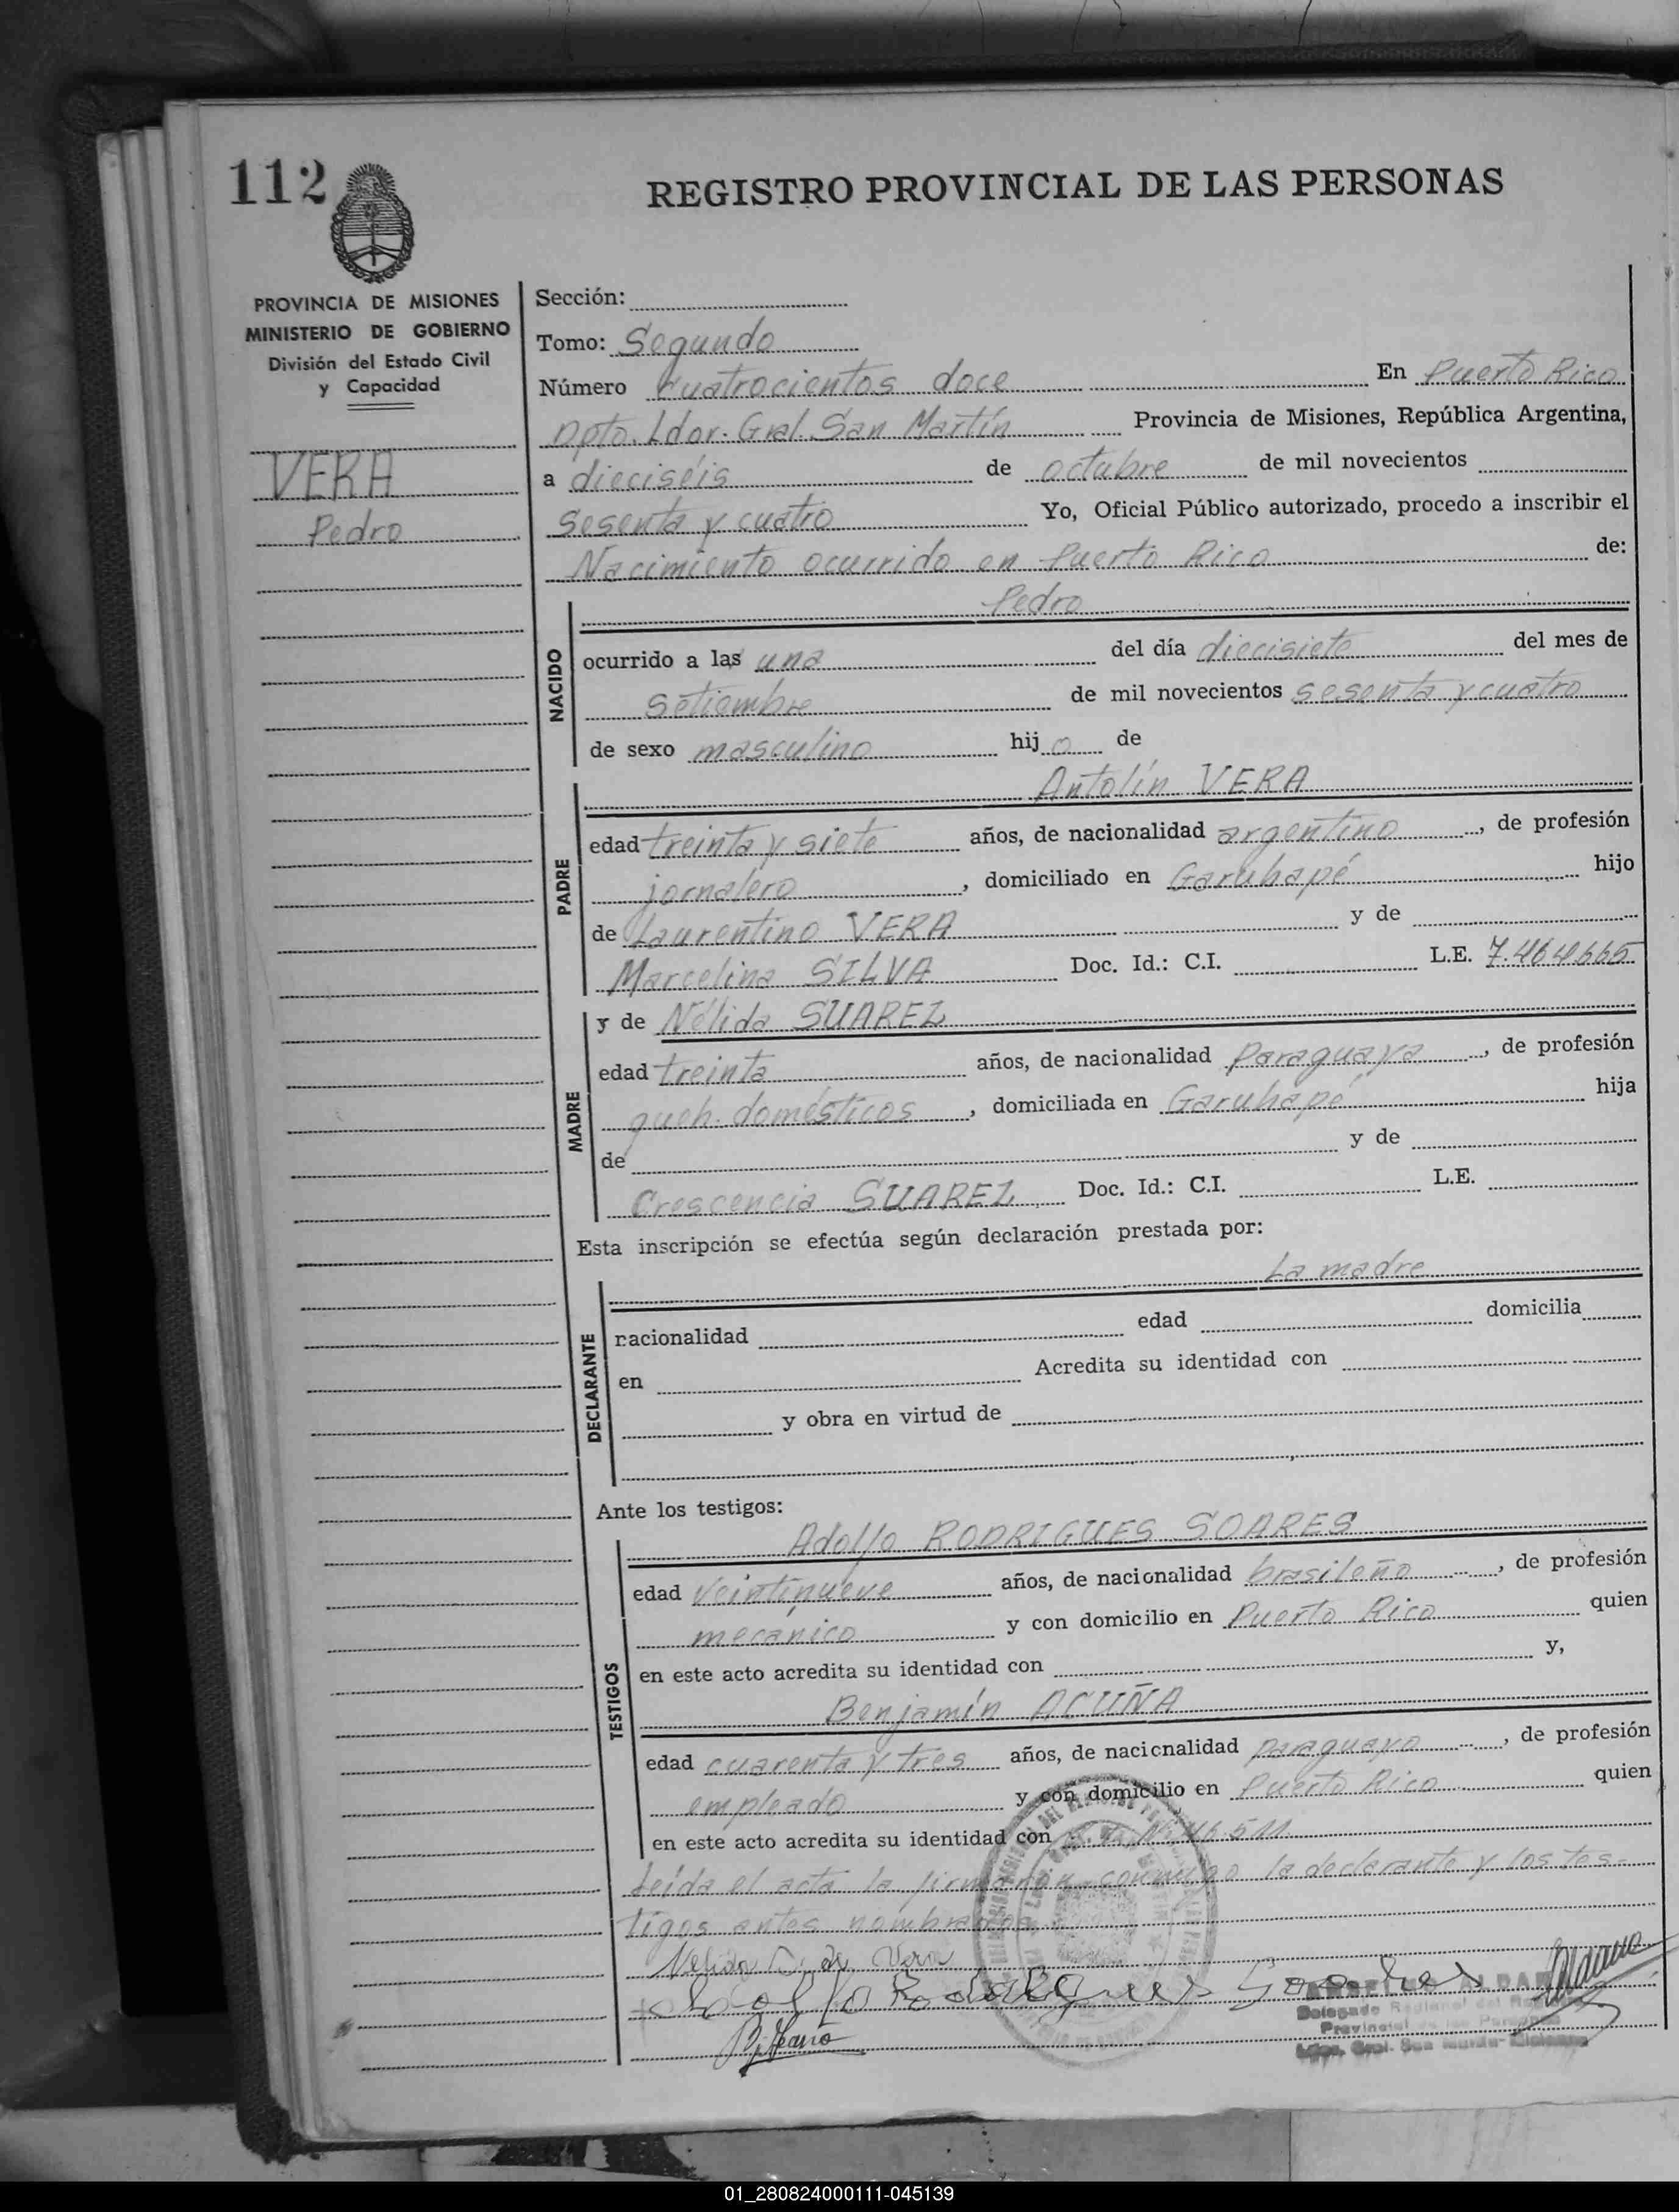 112
REGISTRO PROVINCIAL DE LAS PERSONAS
PROVINCIA DE MISIONES
MINISTERIO DE GOBIERNO
División del Estado Civil
y Capacidad
VERA
Pedro
Sección:
Tomo: Segundo
Número cuatrocientos doce En Puerto Rico
Dpto. Ldor. Gral. San Martín Provincia de Misiones, República Argentina,
a dieciséis de octubre de mil novecientos
sesenta y cuatro Yo, Oficial Público autorizado, procedo a inscribir el
Nacimiento ocurrido en Puerto Rico de:
Pedro
NACIDO
ocurrido a las una del día diecisiete del mes de
setiembre de mil novecientos sesenta y cuatro
de sexo masculino hijo de
Antolín VERA
PADRE
edad treinta y siete años, de nacionalidad argentino, de profesión
jornalero, domiciliado en Garuhapé hijo
de Laurentino VERA y de
Marcelina SILVA Doc. Id.: C.I. L.E. 7.464.665
y de Nélida SUAREZ
MADRE
edad treinta años, de nacionalidad Paraguaya, de profesión
queh. domésticos, domiciliada en Garuhapé hija
de y de
Crescencia SUAREZ Doc. Id.: C.I. L.E.
Esta inscripción se efectúa según declaración prestada por:
La madre
DECLARANTE
nacionalidad edad domicilia
en Acredita su identidad con
y obra en virtud de
Ante los testigos:
Adolfo RODRIGUES SOARES
TESTIGOS
edad veintinueve años, de nacionalidad brasileño, de profesión
mecánico y con domicilio en Puerto Rico quien
en este acto acredita su identidad con y,
Benjamín ACUÑA
edad cuarenta y tres años, de nacionalidad paraguayo, de profesión
empleado y con domicilio en Puerto Rico quien
en este acto acredita su identidad con
Leída el acta la firmarán conmigo la declarante y los tes-
tigos antes nombrados
Nelida S. de Vera
Adolfo Rodrigues Soares
Delegado Regional del
Provincial de las Personas
01_280824000111-045139